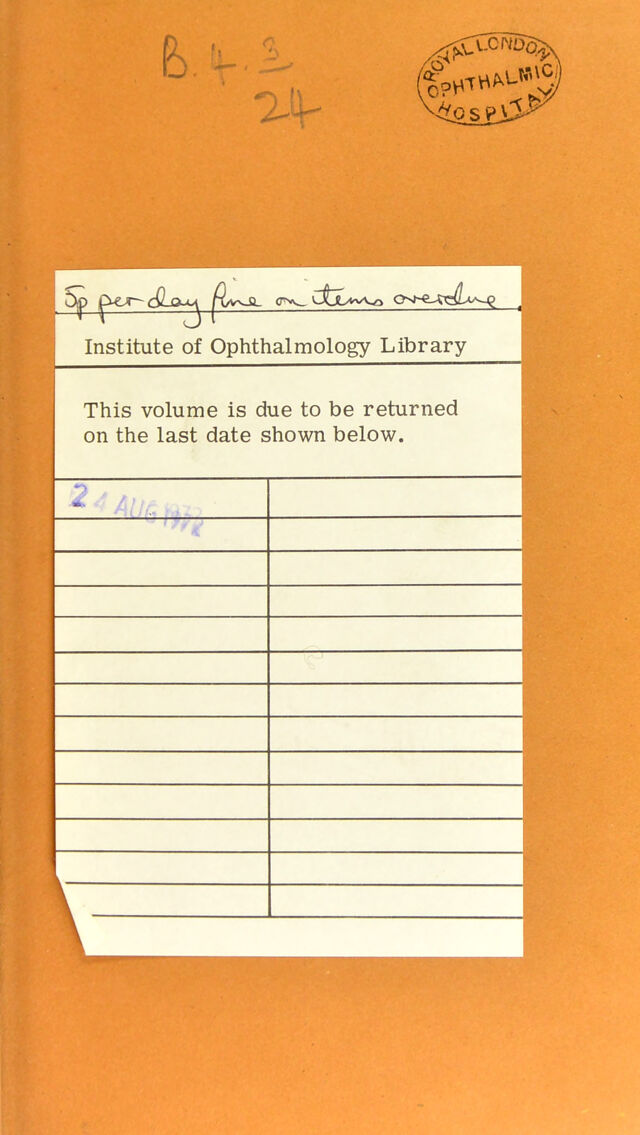 B.4.3
24
ROYAL LONDON
OPHTHALMIC
HOSPITAL.
5p per day fine on items overdue.
Institute of Ophthalmology Library
This volume is due to be returned
on the last date shown below.
24 AUG 1972